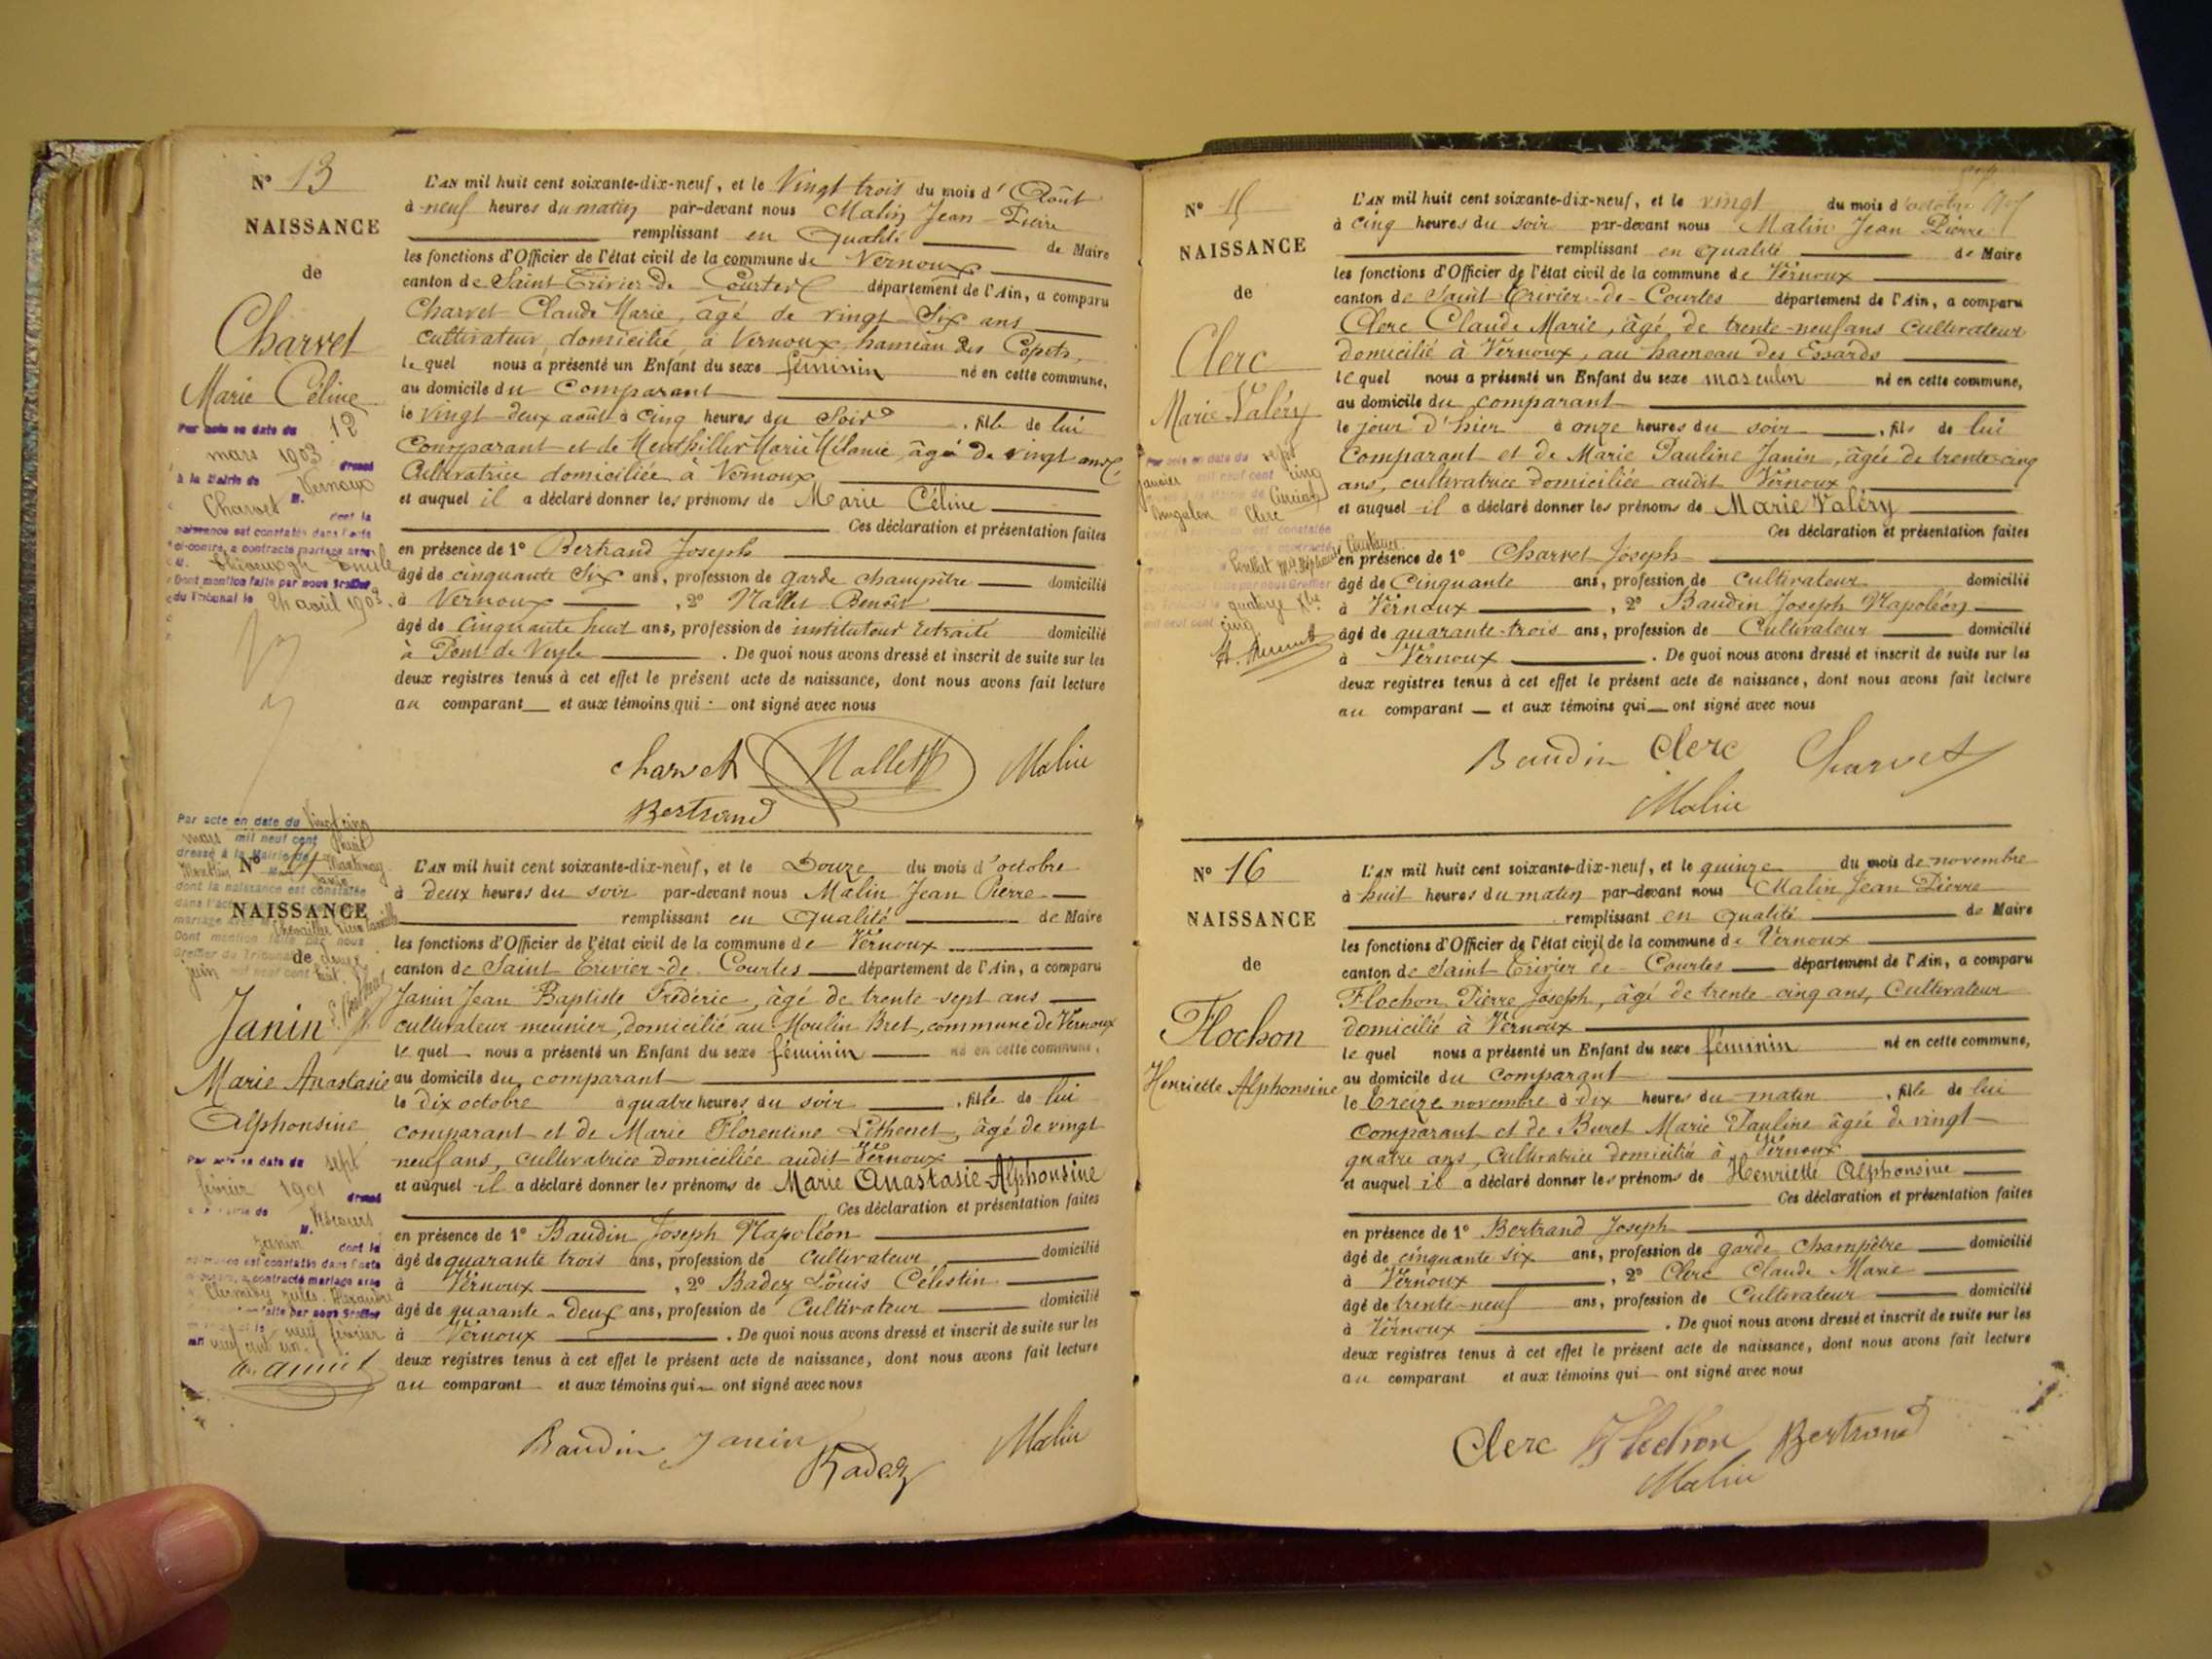 N° 13
NAISSANCE
de
Charvet
Marie Céline
Par acte en date du 12
mars 1903 dressé
à la Mairie de Vernoux
M. Charvet dont la
naissance est constatée dans l'acte
ci-contre, a contracté mariage avec
M. Emile
Dont mention faite par nous Greffier
du Tribunal le 24 août 1903.
L'AN mil huit cent soixante-dix-neuf, et le Vingt trois du mois d'Août
à neuf heures du matin par-devant nous Malin Jean-Pierre
remplissant en qualité de Maire
les fonctions d'Officier de l'état civil de la commune de Vernoux
canton de Saint-Trivier-de-Courtes département de l'Ain, a comparu
Charvet Claude Marie, âgé de vingt-six ans
cultivateur, domicilié à Vernoux hameau des Copets,
lequel nous a présenté un Enfant du sexe féminin né en cette commune,
au domicile du comparant
le vingt-deux août à cinq heures du soir, fille de lui
comparant et de Marie Mélanie âgé de vingt ans
Cultivatrice domiciliée à Vernoux
et auquel il a déclaré donner les prénoms de Marie Céline
Ces déclaration et présentation faites
en présence de 1° Bertrand Joseph
âgé de cinquante six ans, profession de garde champêtre domicilié
à Vernoux, 2° Nallet Benoît
âgé de cinquante huit ans, profession de instituteur retraité domicilié
à Pont de Veyle. De quoi nous avons dressé et inscrit de suite sur les
deux registres tenus à cet effet le présent acte de naissance, dont nous avons fait lecture
au comparant et aux témoins qui ont signé avec nous
Charvet Nallet Malin
Bertrand
Par acte en date du Vingt cinq
mars mil neuf cent huit
dressé à la Mairie de
N° 14
dont la naissance est constatée
NAISSANCE
Dont mention faite par nous
Greffier du Tribunal
de
juin mil neuf cent huit
Janin
Marie Anastasie
Alphonsine
Par acte en date du sept
février 1901 dressé
à la Mairie de Vescours
M. Janin dont la
naissance est constatée dans l'acte
ci-contre, a contracté mariage avec
Jules Alexandre
faite par nous Greffier
neuf février
mil neuf cent un.
L'AN mil huit cent soixante-dix-neuf, et le Douze du mois d'octobre
à deux heures du soir par-devant nous Malin Jean Pierre
remplissant en qualité de Maire
les fonctions d'Officier de l'état civil de la commune de Vernoux
canton de Saint-Trivier-de-Courtes département de l'Ain, a comparu
Janin Jean Baptiste Frédéric, âgé de trente-sept ans
cultivateur-meunier, domicilié au Moulin Bret, commune de Vernoux
lequel nous a présenté un Enfant du sexe féminin né en cette commune,
au domicile du comparant
le dix octobre à quatre heures du soir, fille de lui
comparant et de Marie Florentine Léthenet, âgé de vingt
neuf ans, cultivatrice domiciliée audit Vernoux
et auquel il a déclaré donner les prénoms de Marie Anastasie-Alphonsine
Ces déclaration et présentation faites
en présence de 1° Baudin Joseph Napoléon
âgé de quarante trois ans, profession de cultivateur domicilié
à Vernoux, 2° Badez Louis Célestin
âgé de quarante-deux ans, profession de Cultivateur domicilié
à Vernoux. De quoi nous avons dressé et inscrit de suite sur les
deux registres tenus à cet effet le présent acte de naissance, dont nous avons fait lecture
au comparant et aux témoins qui ont signé avec nous
Baudin Janin Malin
Badez
N° 15
NAISSANCE
de
Clerc
Marie Valéry
Par acte en date du sept
janvier mil neuf cent cinq
Curciat
Dongalon Clerc
est constatée
par nous Greffier
quatorze
mil neuf cent cinq
L'AN mil huit cent soixante-dix-neuf, et le vingt du mois d'octobre
à cinq heures du soir par-devant nous Malin Jean Pierre
remplissant en qualité de Maire
les fonctions d'Officier de l'état civil de la commune de Vernoux
canton de Saint-Trivier-de-Courtes département de l'Ain, a comparu
Clerc Claude Marie, âgé de trente-neuf ans cultivateur
domicilié à Vernoux, au hameau des Essards
lequel nous a présenté un Enfant du sexe masculin né en cette commune,
au domicile du comparant
le jour d'hier à onze heures du soir, fils de lui
comparant et de Marie Pauline Janin, âgée de trente-cinq
ans, cultivatrice domiciliée audit Vernoux
et auquel il a déclaré donner les prénoms de Marie Valéry
Ces déclaration et présentation faites
en présence de 1° Charvet Joseph
âgé de cinquante ans, profession de cultivateur domicilié
à Vernoux, 2° Baudin Joseph Napoléon
âgé de quarante-trois ans, profession de Cultivateur domicilié
à Vernoux. De quoi nous avons dressé et inscrit de suite sur les
deux registres tenus à cet effet le présent acte de naissance, dont nous avons fait lecture
au comparant et aux témoins qui ont signé avec nous
Baudin Clerc Charvet
Malin
N° 16
NAISSANCE
de
Flochon
Henriette Alphonsine
L'AN mil huit cent soixante-dix-neuf, et le quinze du mois de novembre
à huit heures du matin par-devant nous Malin Jean Pierre
remplissant en qualité de Maire
les fonctions d'Officier de l'état civil de la commune de Vernoux
canton de Saint-Trivier-de-Courtes département de l'Ain, a comparu
Flochon Pierre Joseph, âgé de trente-cinq ans, Cultivateur
domicilié à Vernoux
lequel nous a présenté un Enfant du sexe féminin né en cette commune,
au domicile du comparant
le treize novembre à dix heures du matin, fille de lui
comparant et de Buret Marie Pauline âgée de vingt-
quatre ans, Cultivatrice domiciliée à Vernoux
et auquel il a déclaré donner les prénoms de Henriette Alphonsine
Ces déclaration et présentation faites
en présence de 1° Bertrand Joseph
âgé de cinquante six ans, profession de garde champêtre domicilié
à Vernoux, 2° Clerc Claude Marie
âgé de trente-neuf ans, profession de Cultivateur domicilié
à Vernoux. De quoi nous avons dressé et inscrit de suite sur les
deux registres tenus à cet effet le présent acte de naissance, dont nous avons fait lecture
au comparant et aux témoins qui ont signé avec nous
Clerc Flochon Bertrand
Malin